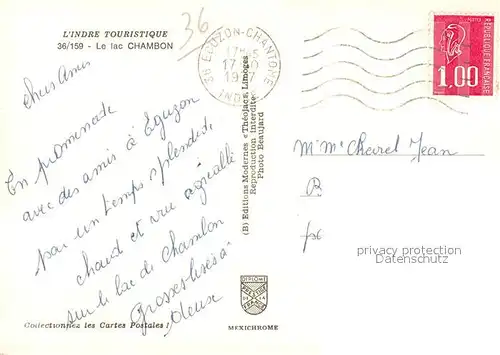 L'INDRE TOURISTIQUE
36/159 - Le lac CHAMBON
36
36 EGUZON-CHANTOME
INDRE
RÉPUBLIQUE FRANÇAISE
1,00
chers Amis
En promenade
avec des amis à Eguzon
par un temps splendide
chaud et vue agréable
sur le lac de Chambon
Grosses bises à
deux
(B) Editions Modernes « Théojac », Limoges
Reproduction interdite
Photo Beaujard
M. Mme Chevel Jean
B
privacy protection
Datenschutz
Collectionnez les Cartes Postales !
MEXICHROME